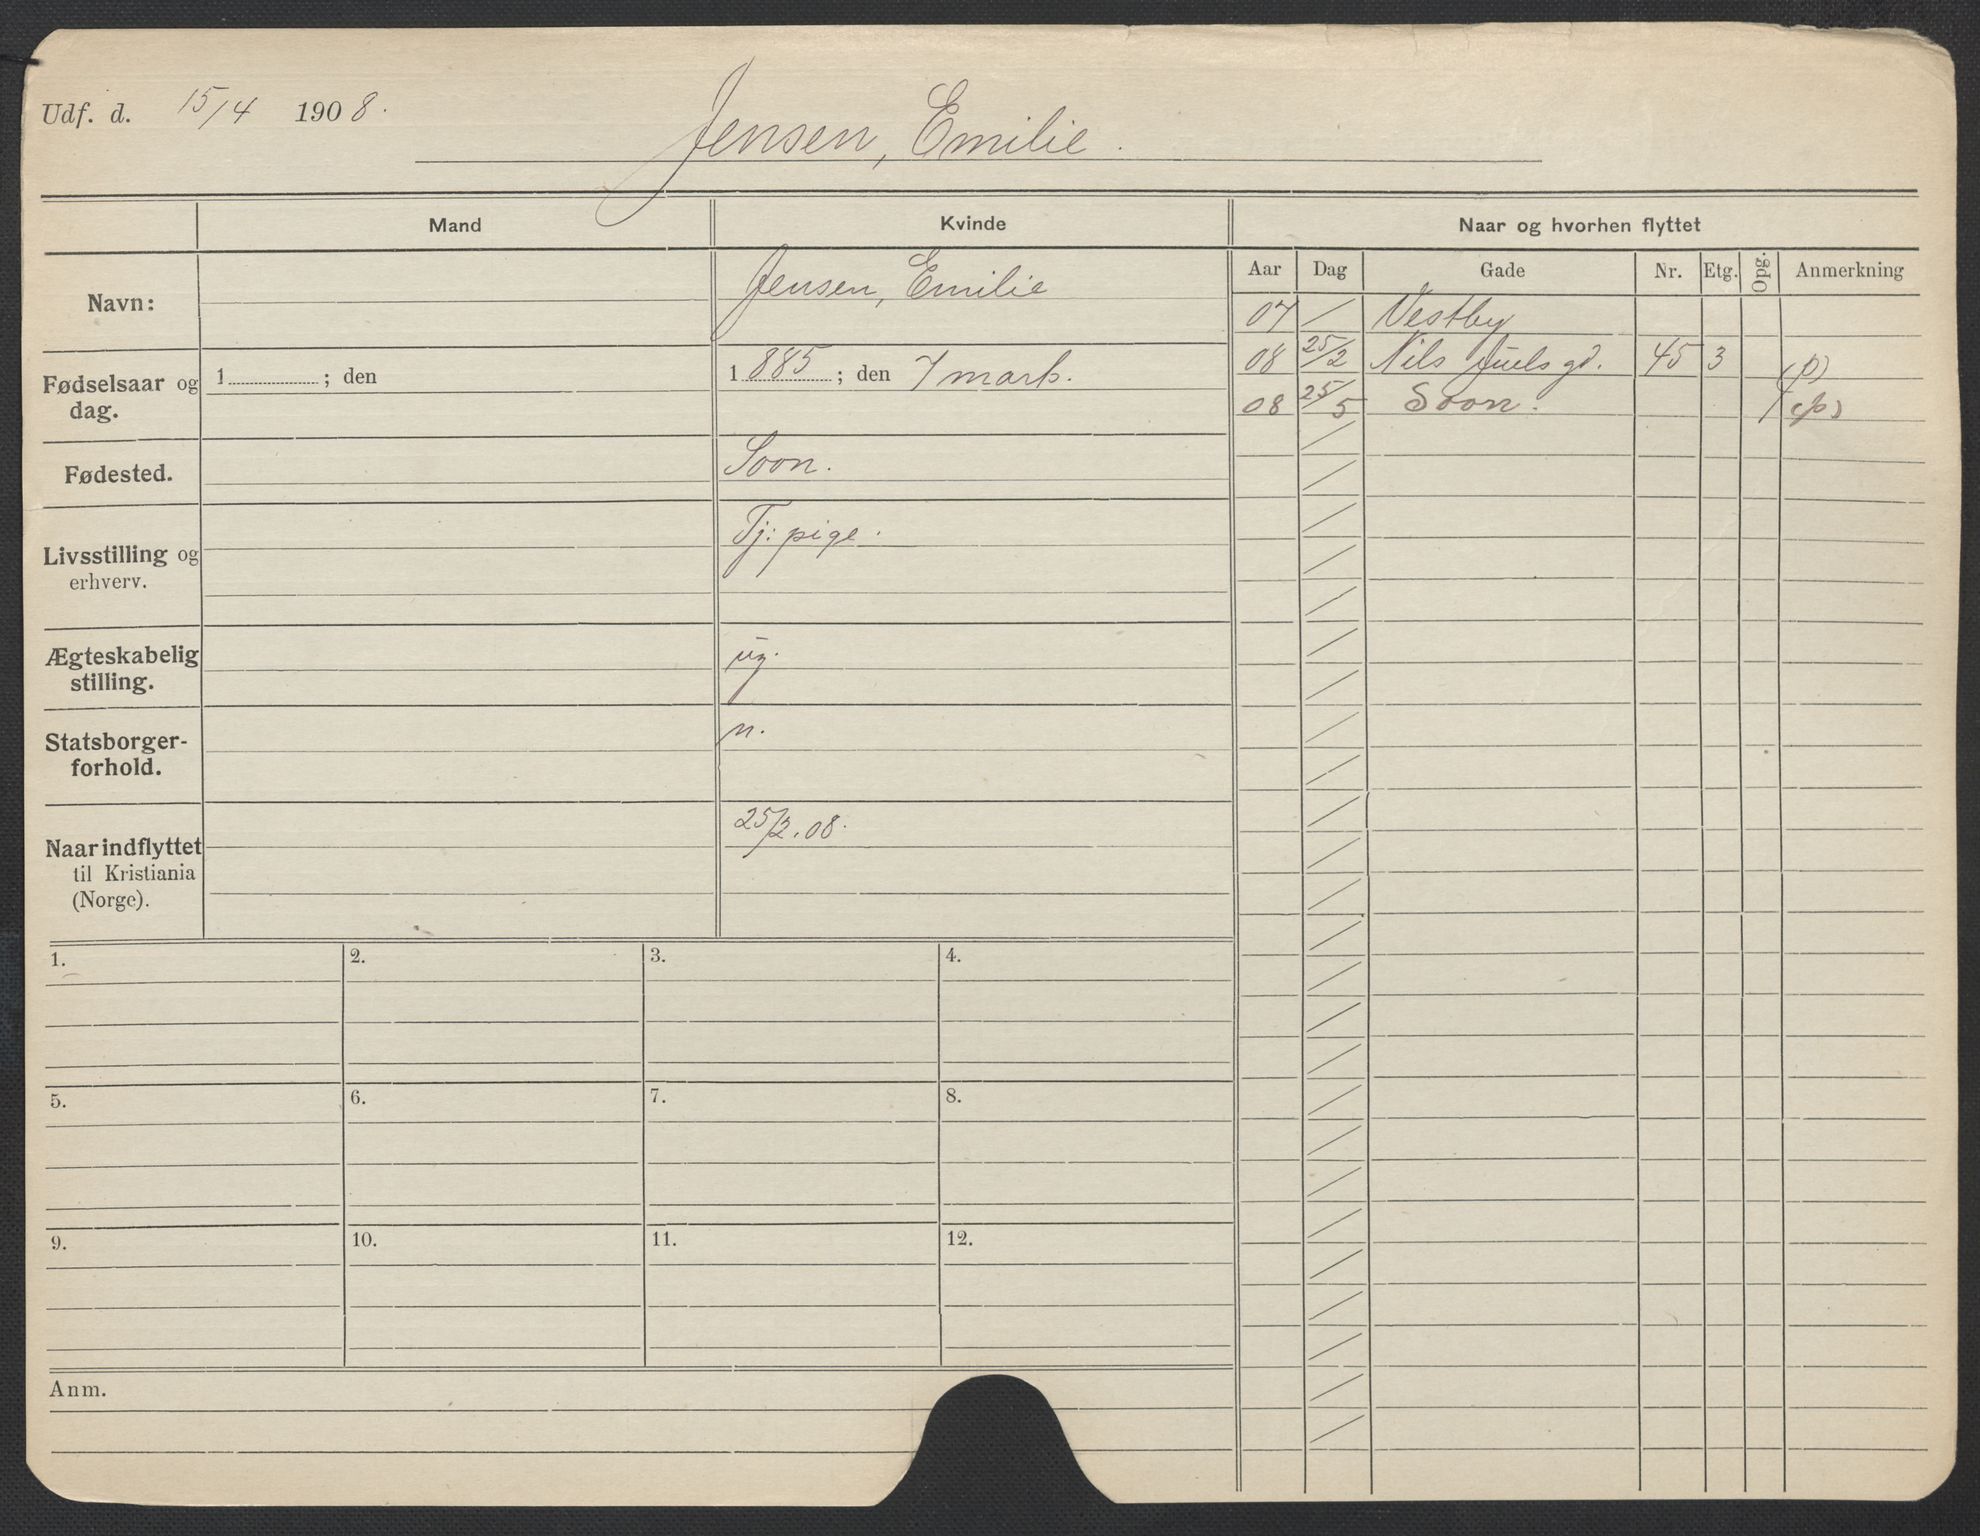 Udf. d. 15/4 1908.
Jensen, Emilie.
Mand
Kvinde
Naar og hvorhen flyttet
Aar Dag Gade Nr. Etg. Opg. Anmerkning
Navn: Jensen, Emilie
07 / Vestby
08 25/2 Nils Juels gd. 45 3 (p)
08 25/5 Soon. (p)
Fødselsaar og
dag.
1 ; den
1885 ; den 7 marts.
Fødested. Soon.
Livsstilling og
erhverv.
Tj: pige.
Ægteskabelig
stilling.
ug.
Statsborger-
forhold.
n.
Naar indflyttet
til Kristiania
(Norge).
25/2.08.
1. 2. 3. 4.
5. 6. 7. 8.
9. 10. 11. 12.
Anm.